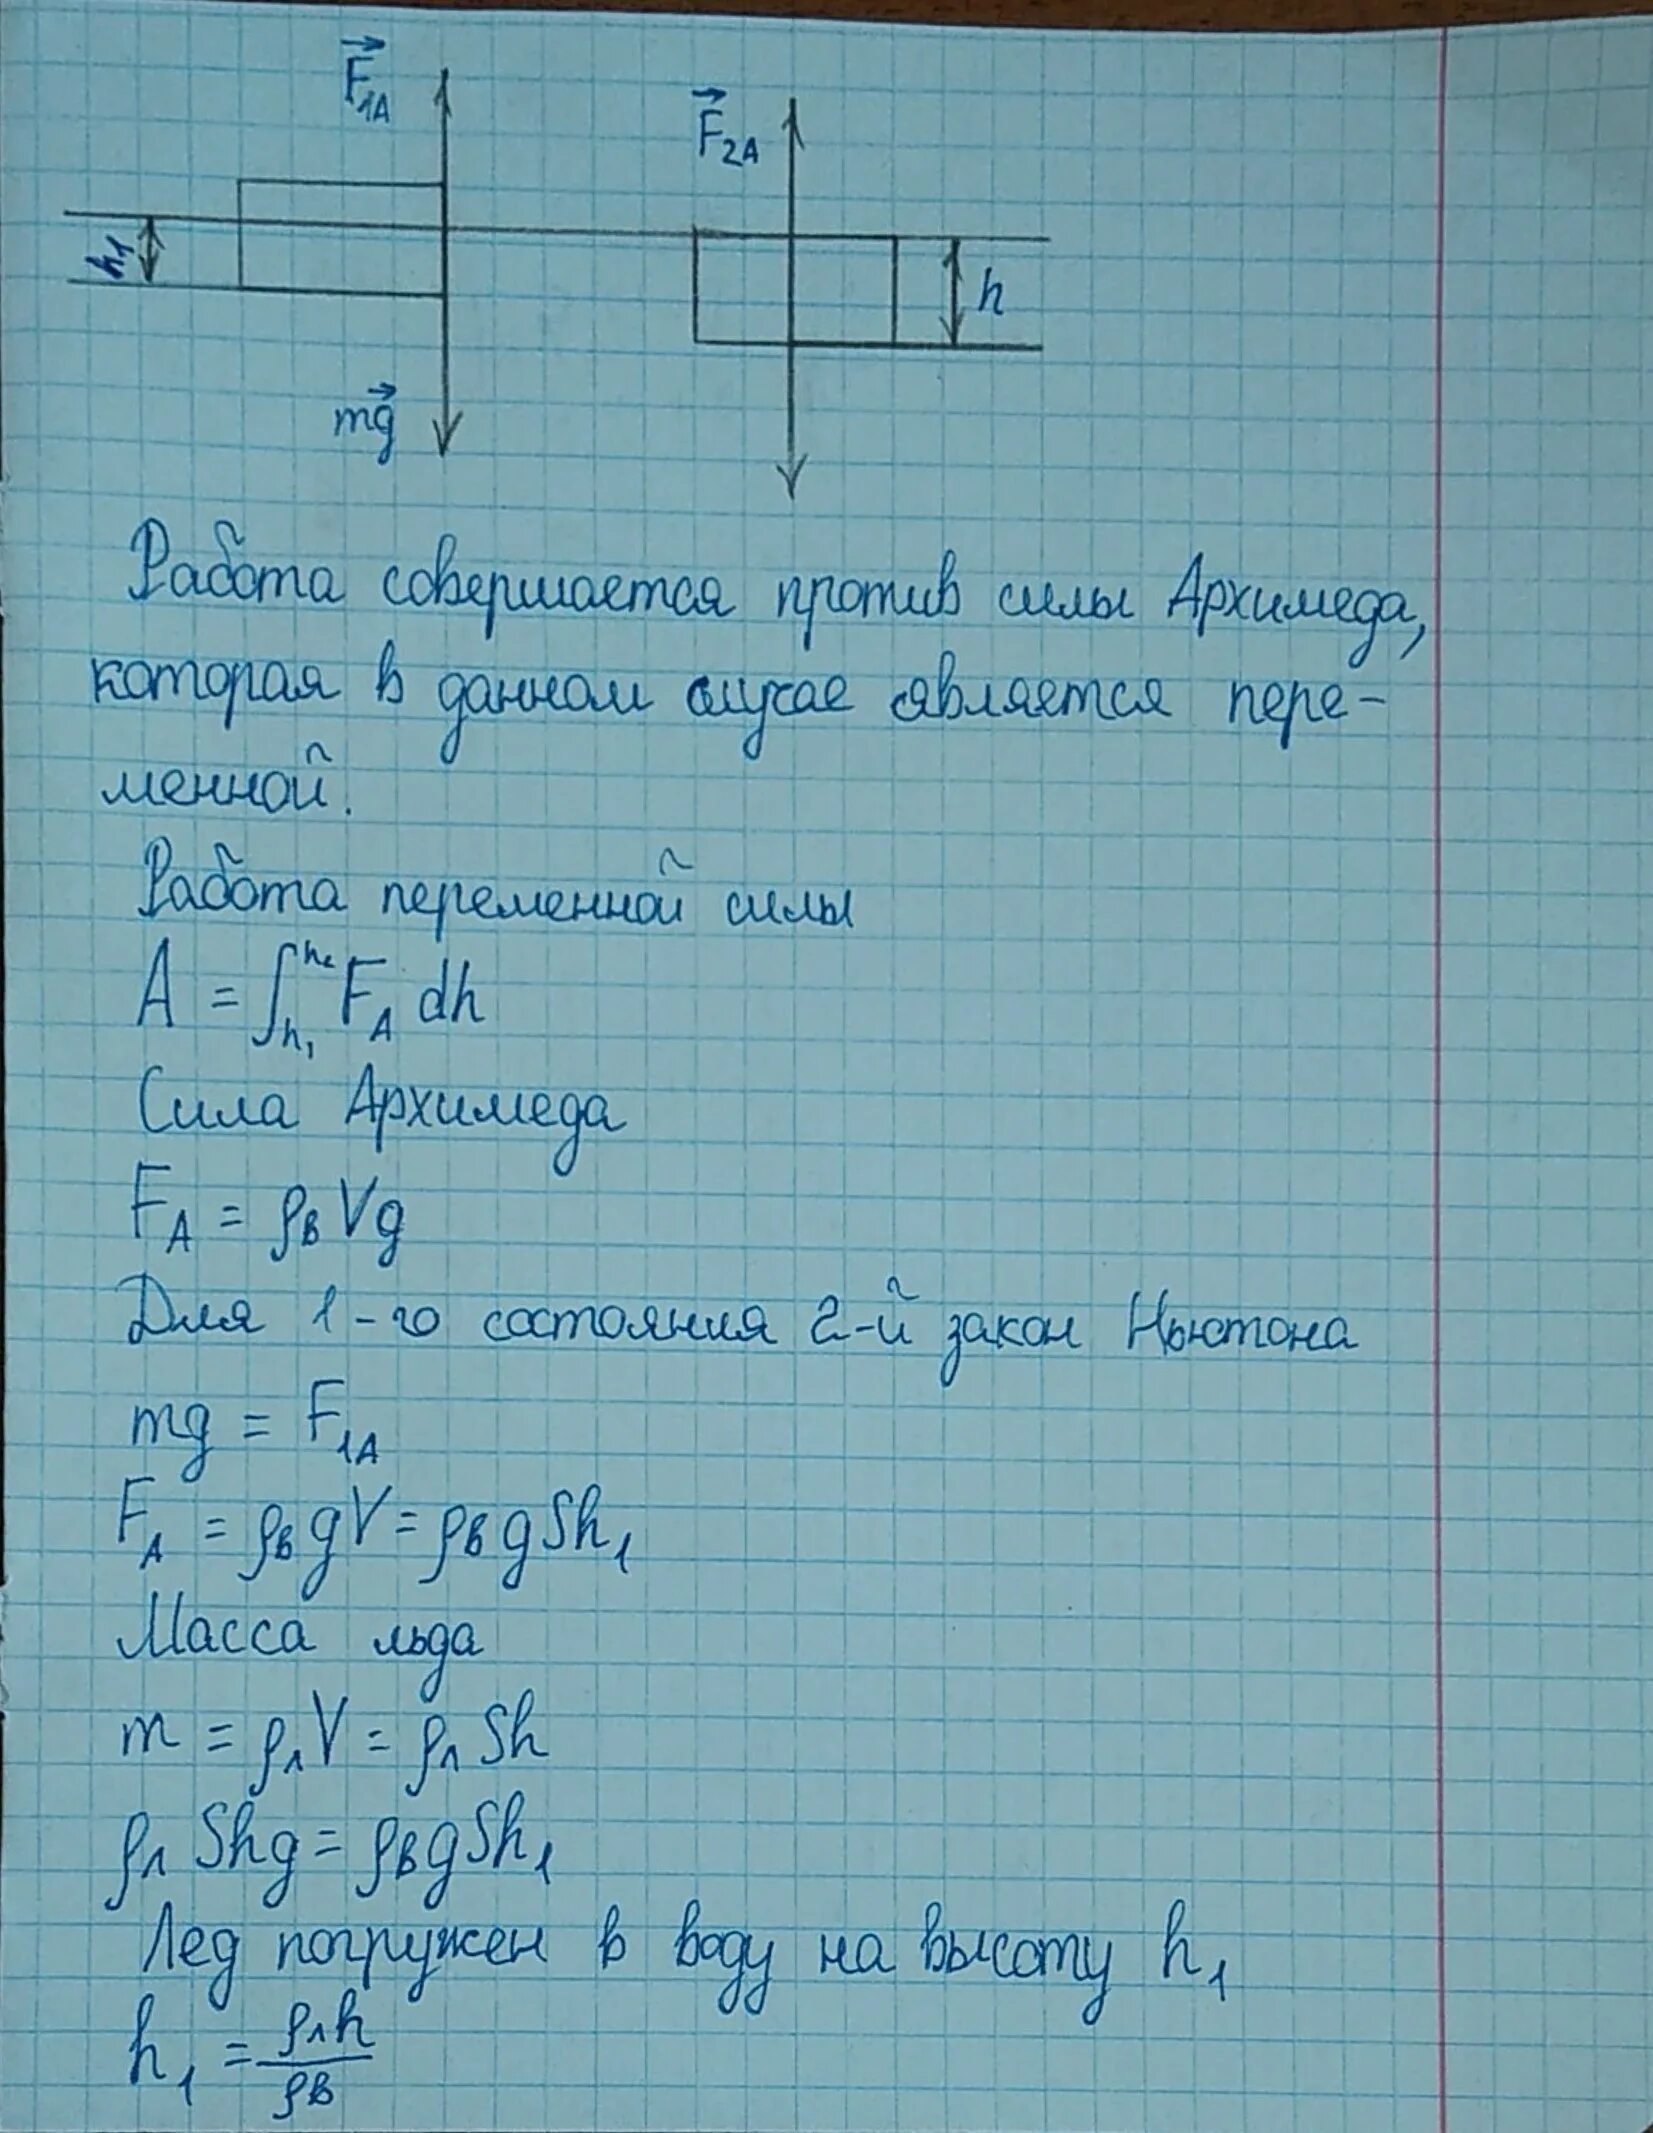 F₁А
F₂А
h₁
h
mg
Работа совершается против силы Архимеда,
которая в данном случае является пере-
менной.
Работа переменной силы
A = ∫ₕ₁ʰ² F_A dh
Сила Архимеда
F_A = ρв Vg
Для 1-го состояния 2-й закон Ньютона
mg = F₁А
F_A = ρв gV = ρв gSh₁
Масса льда
m = ρл V = ρл Sh
ρл Shg = ρв gSh₁
Лед погружен в воду на высоту h₁
h₁ = ρл h / ρв